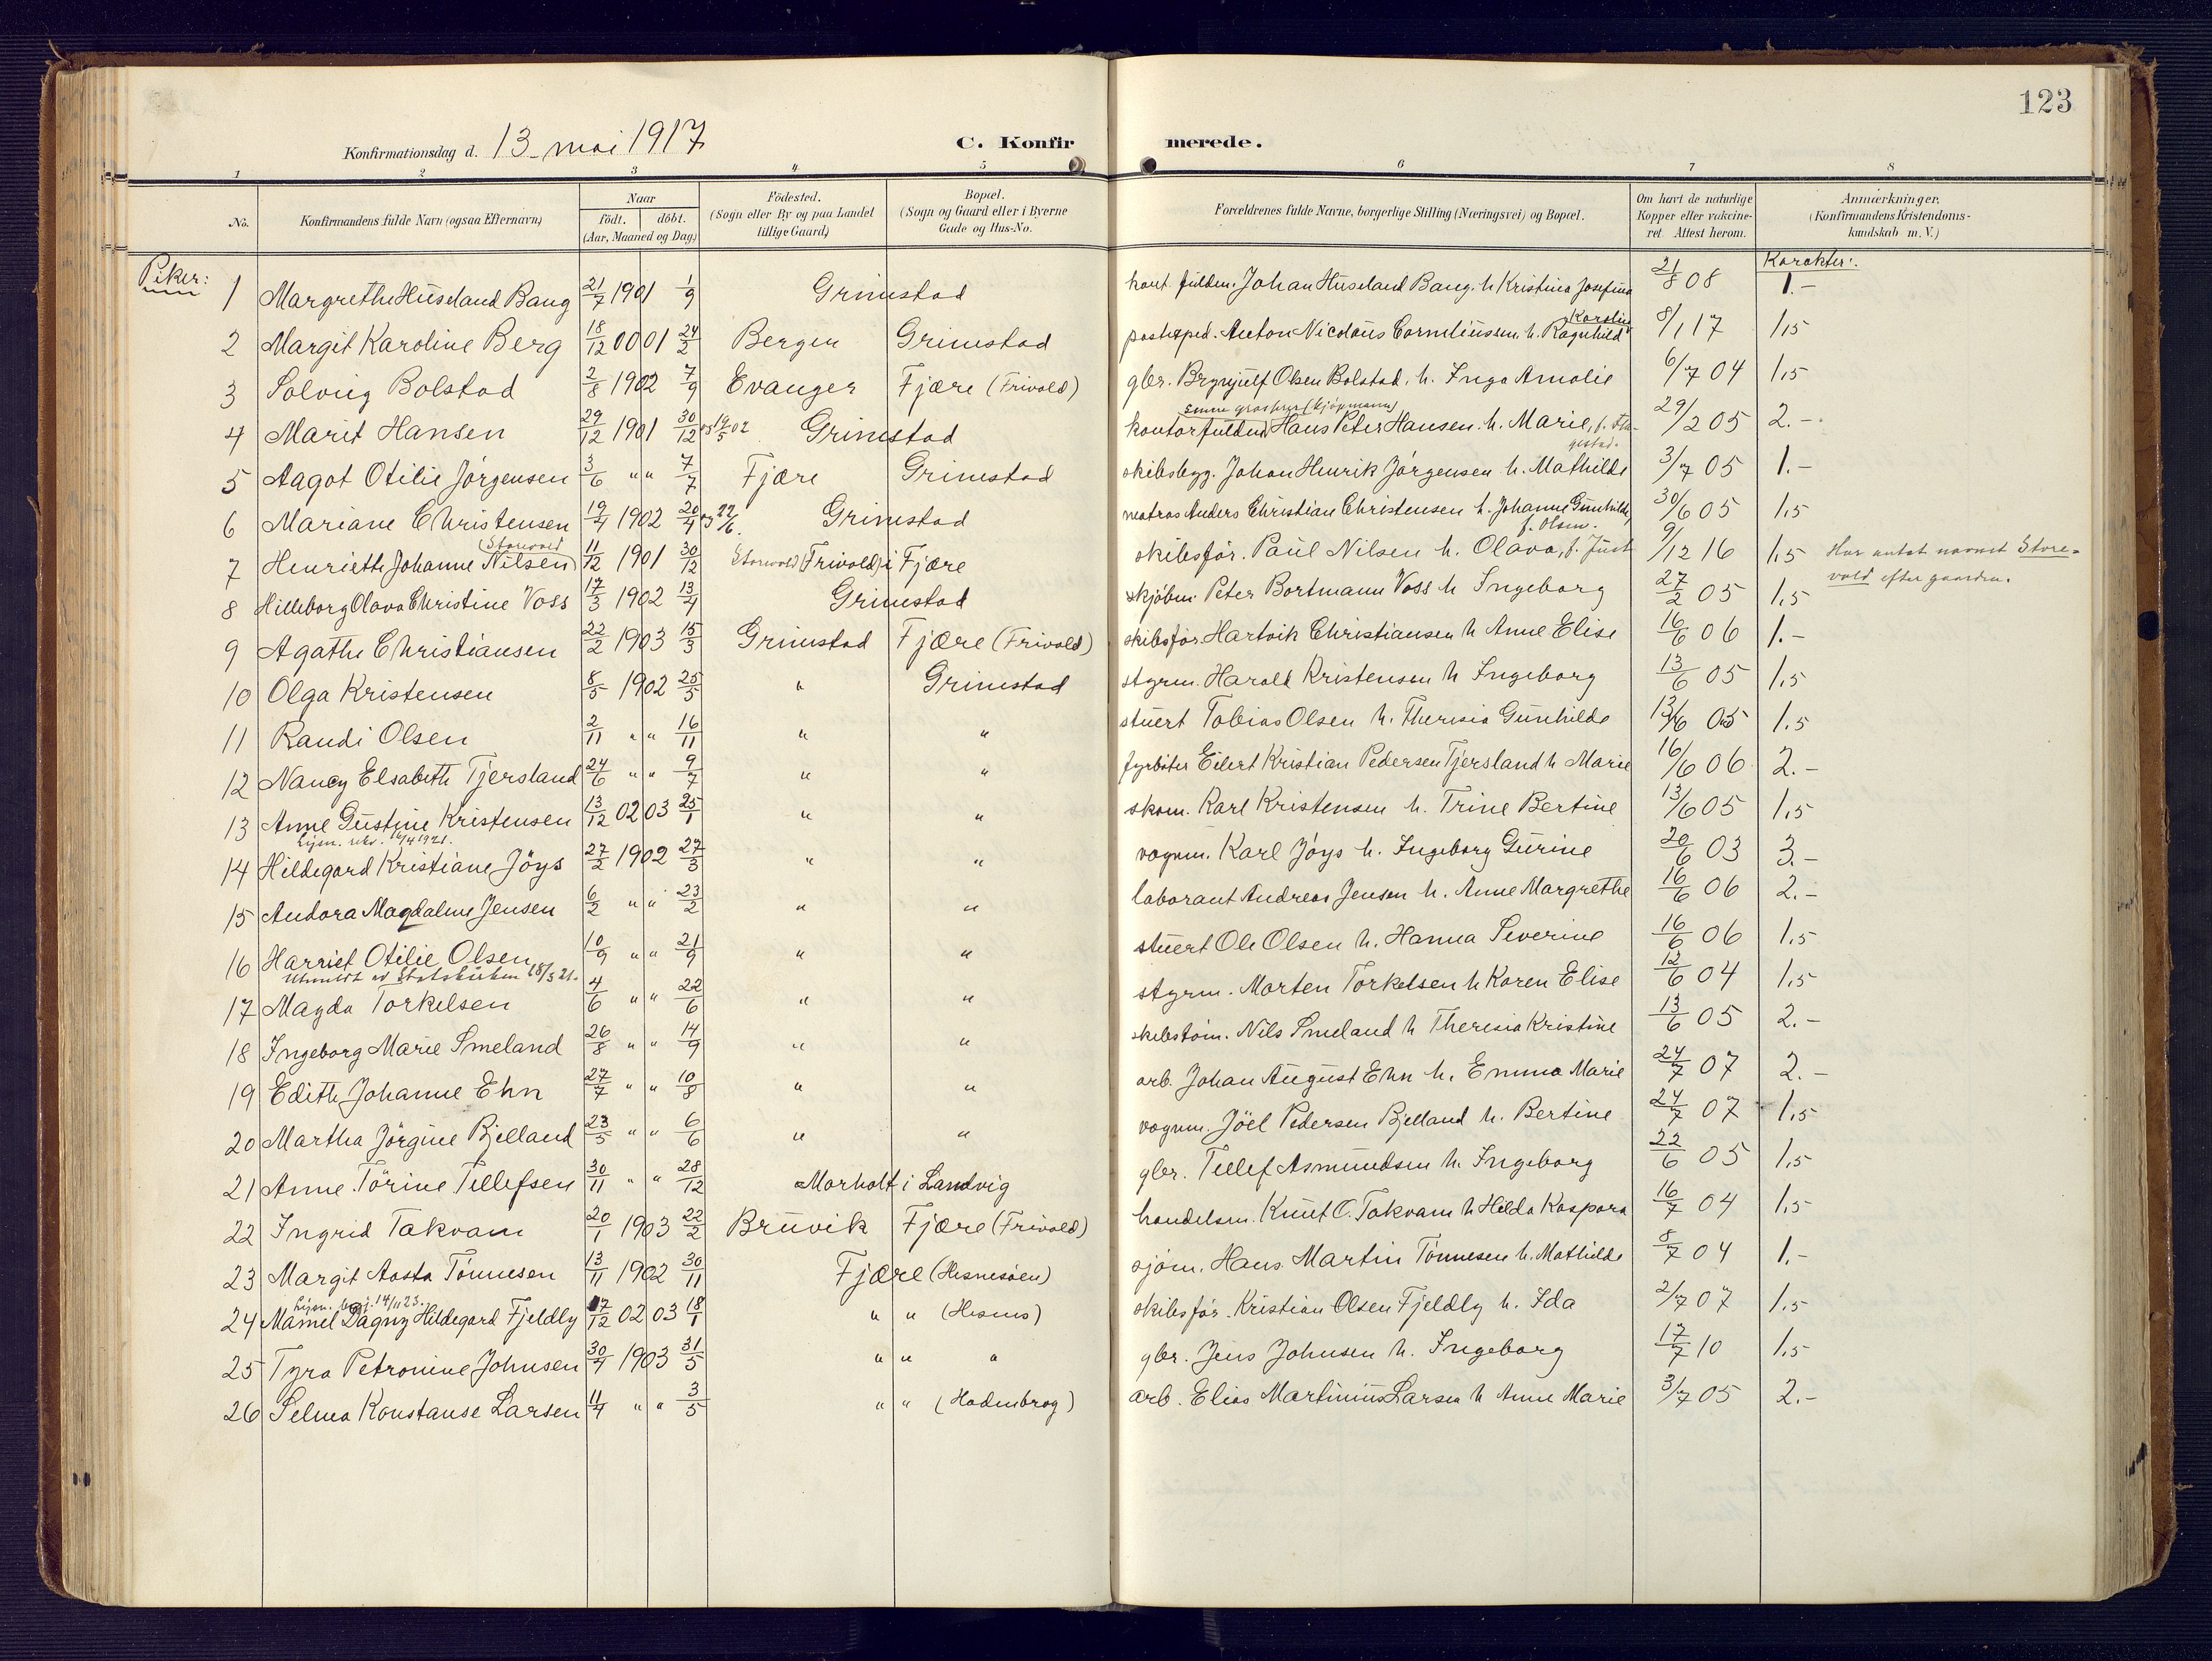 123
Konfirmationsdag d. 13 mai 1917
C. Konfirmerede.
1 2 3 4 5 6 7 8
No. Konfirmandens fulde Navn (ogsaa Efternavn) Naar født. døbt. (Aar, Maaned og Dag) Födested. (Sogn eller By og paa Landet tillige Gaard) Bopæl. (Sogn og Gaard eller i Byerne Gade og Hus-No. Forældrenes fulde Navne, borgerlige Stilling (Næringsvei) og Bopæl. Om havt de naturlige Kopper eller vaccineret. Attest herom. Anmærkninger, (Konfirmandens Kristendomskundskab m. V.)
Piker: Karakter:
1 Margrethe Huseland Bang 21/7 1901 1/9 Grimstad Johan Huseland Bang. h Kristina Josefina 21/8 08 1.-
2 Margit Karoline Berg 18/12 00 01 24/2 Bergen Grimstad postexped. Anton Nicolaus Corneliussen. h. Ragnhild Karoline 8/1 17 1,5
3 Solveig Bolstad 2/8 1902 7/9 Evanger Fjære (Frivold) gbr. Brynjulf Olsen Bolstad. h. Inga Amalie 6/7 04 1,5
4 Marit Hansen 29/12 1901 30/12 19/5 02 Grimstad kontorfuldm. Hans Peter Hansen. h. Marie, 29/2 05 2.-
5 Aagot Otilie Jörgensen 3/6 " " 7/7 Fjære Grimstad skibsbygg. Johan Henrik Jörgensen h. Mathilde 3/7 05 1.-
6 Mariane Christensen 19/4 1902 20/4 22/6. Grimstad matros Anders Christian Christensen h. Johanne Gunhilde, f. Olsen. 30/6 05 1,5
7 Henriette Johanne Nilsen (Storevold) 11/12 1901 30/12 Storevold (Frivold) i Fjære skibsför. Paul Nilsen h. Olava, f. Just 9/12 16 1,5 Har antat navnet Storevold efter gaarden.
8 Hilleborg Olava Christine Voss 17/3 1902 13/4 Grimstad skjöbm. Peter Bortmann Voss h Ingeborg 27/2 05 1,5
9 Agathe Christiansen 22/2 1903 15/3 Grimstad Fjære (Frivold) skibsför Hartvik Christiansen h Anne Elise 16/6 06 1.-
10 Olga Kristensen 8/5 1902 25/5 " Grimstad styrm. Harald Kristensen h Ingeborg 13/6 05 1,5
11 Randi Olsen 2/11 " " 16/11 " " stuert Tobias Olsen h. Theresia Gunhilde 13/6 05 1.5
12 Nancy Elsabeth Tjersland 24/6 " " 9/7 " " fyrböter Eilert Kristian Pedersen Tjersland h Marie 16/6 06 2.-
13 Anne Gustine Kristensen 13/12 02 03 25/1 " " skom. Karl Kristensen h. Trine Bertine 13/6 05 1,5
14 Hildegard Kristiane Jöys 27/2 1902 27/3 " " vognm. Karl Jöys h. Ingeborg Gurine 20/6 03 3.-
15 Andora Magdalene Jensen 6/2 " " 23/2 " " laborant Andreas Jensen h. Anne Margrethe 16/6 06 2.-
16 Harriet Otilie Olsen 10/9 " " 21/9 " " stuert Ole Olsen h. Hanna Severine 16/6 06 1.5
Utmeldt av Statskirken 18/3 21.
17 Magda Torkelsen 4/6 " " 22/6 " " styrm. Morten Torkelsen h Karen Elise 12/6 04 1,5
18 Ingeborg Marie Smeland 26/8 " " 14/9 " " skibstöm. Nils Smeland h Theresia Kristine 13/6 05 2.-
19 Edith Johanne Ehn 27/7 " " 10/8 " " arb. Johan August Ehn h. Emma Marie 24/7 07 2.-
20 Martha Jörgine Bjelland 23/5 " " 6/6 " " vognm. Jöel Pedersen Bjelland h. Bertine 24/7 07 1,5
21 Anne Törine Tellefsen 30/11 " " 28/12 Morholt i Landvig gbr. Tellef Asmundsen h. Ingeborg 22/6 05 1,5
22 Ingrid Takvam 20/1 1903 22/2 Bruvik Fjære (Frivold) handelsm. Knut O. Takvam h Hilda Kaspara 16/7 04 1.5
23 Margit Aasta Tönnesen 13/11 1902 30/11 Fjære (Hesnesöen) sjöm. Hans Martin Tönnesen h. Mathilde 8/7 04 1.-
24 Mamel Dagny Hildegard Fjeldly 17/12 02 03 18/1 " " (Hesnes) skibsför. Kristian Olsen Fjeldly h. Ida 2/7 07 1.5
25 Tyra Petronine Johnsen 30/4 1903 31/5 " " " gbr. Jens Johnsen h. Ingeborg 17/7 10 1.5
26 Selma Konstanse Larsen 11/4 " " 3/5 " " (Hodnebrog) arb. Elias Martinius Larsen h Anne Marie 3/7 05 2.-